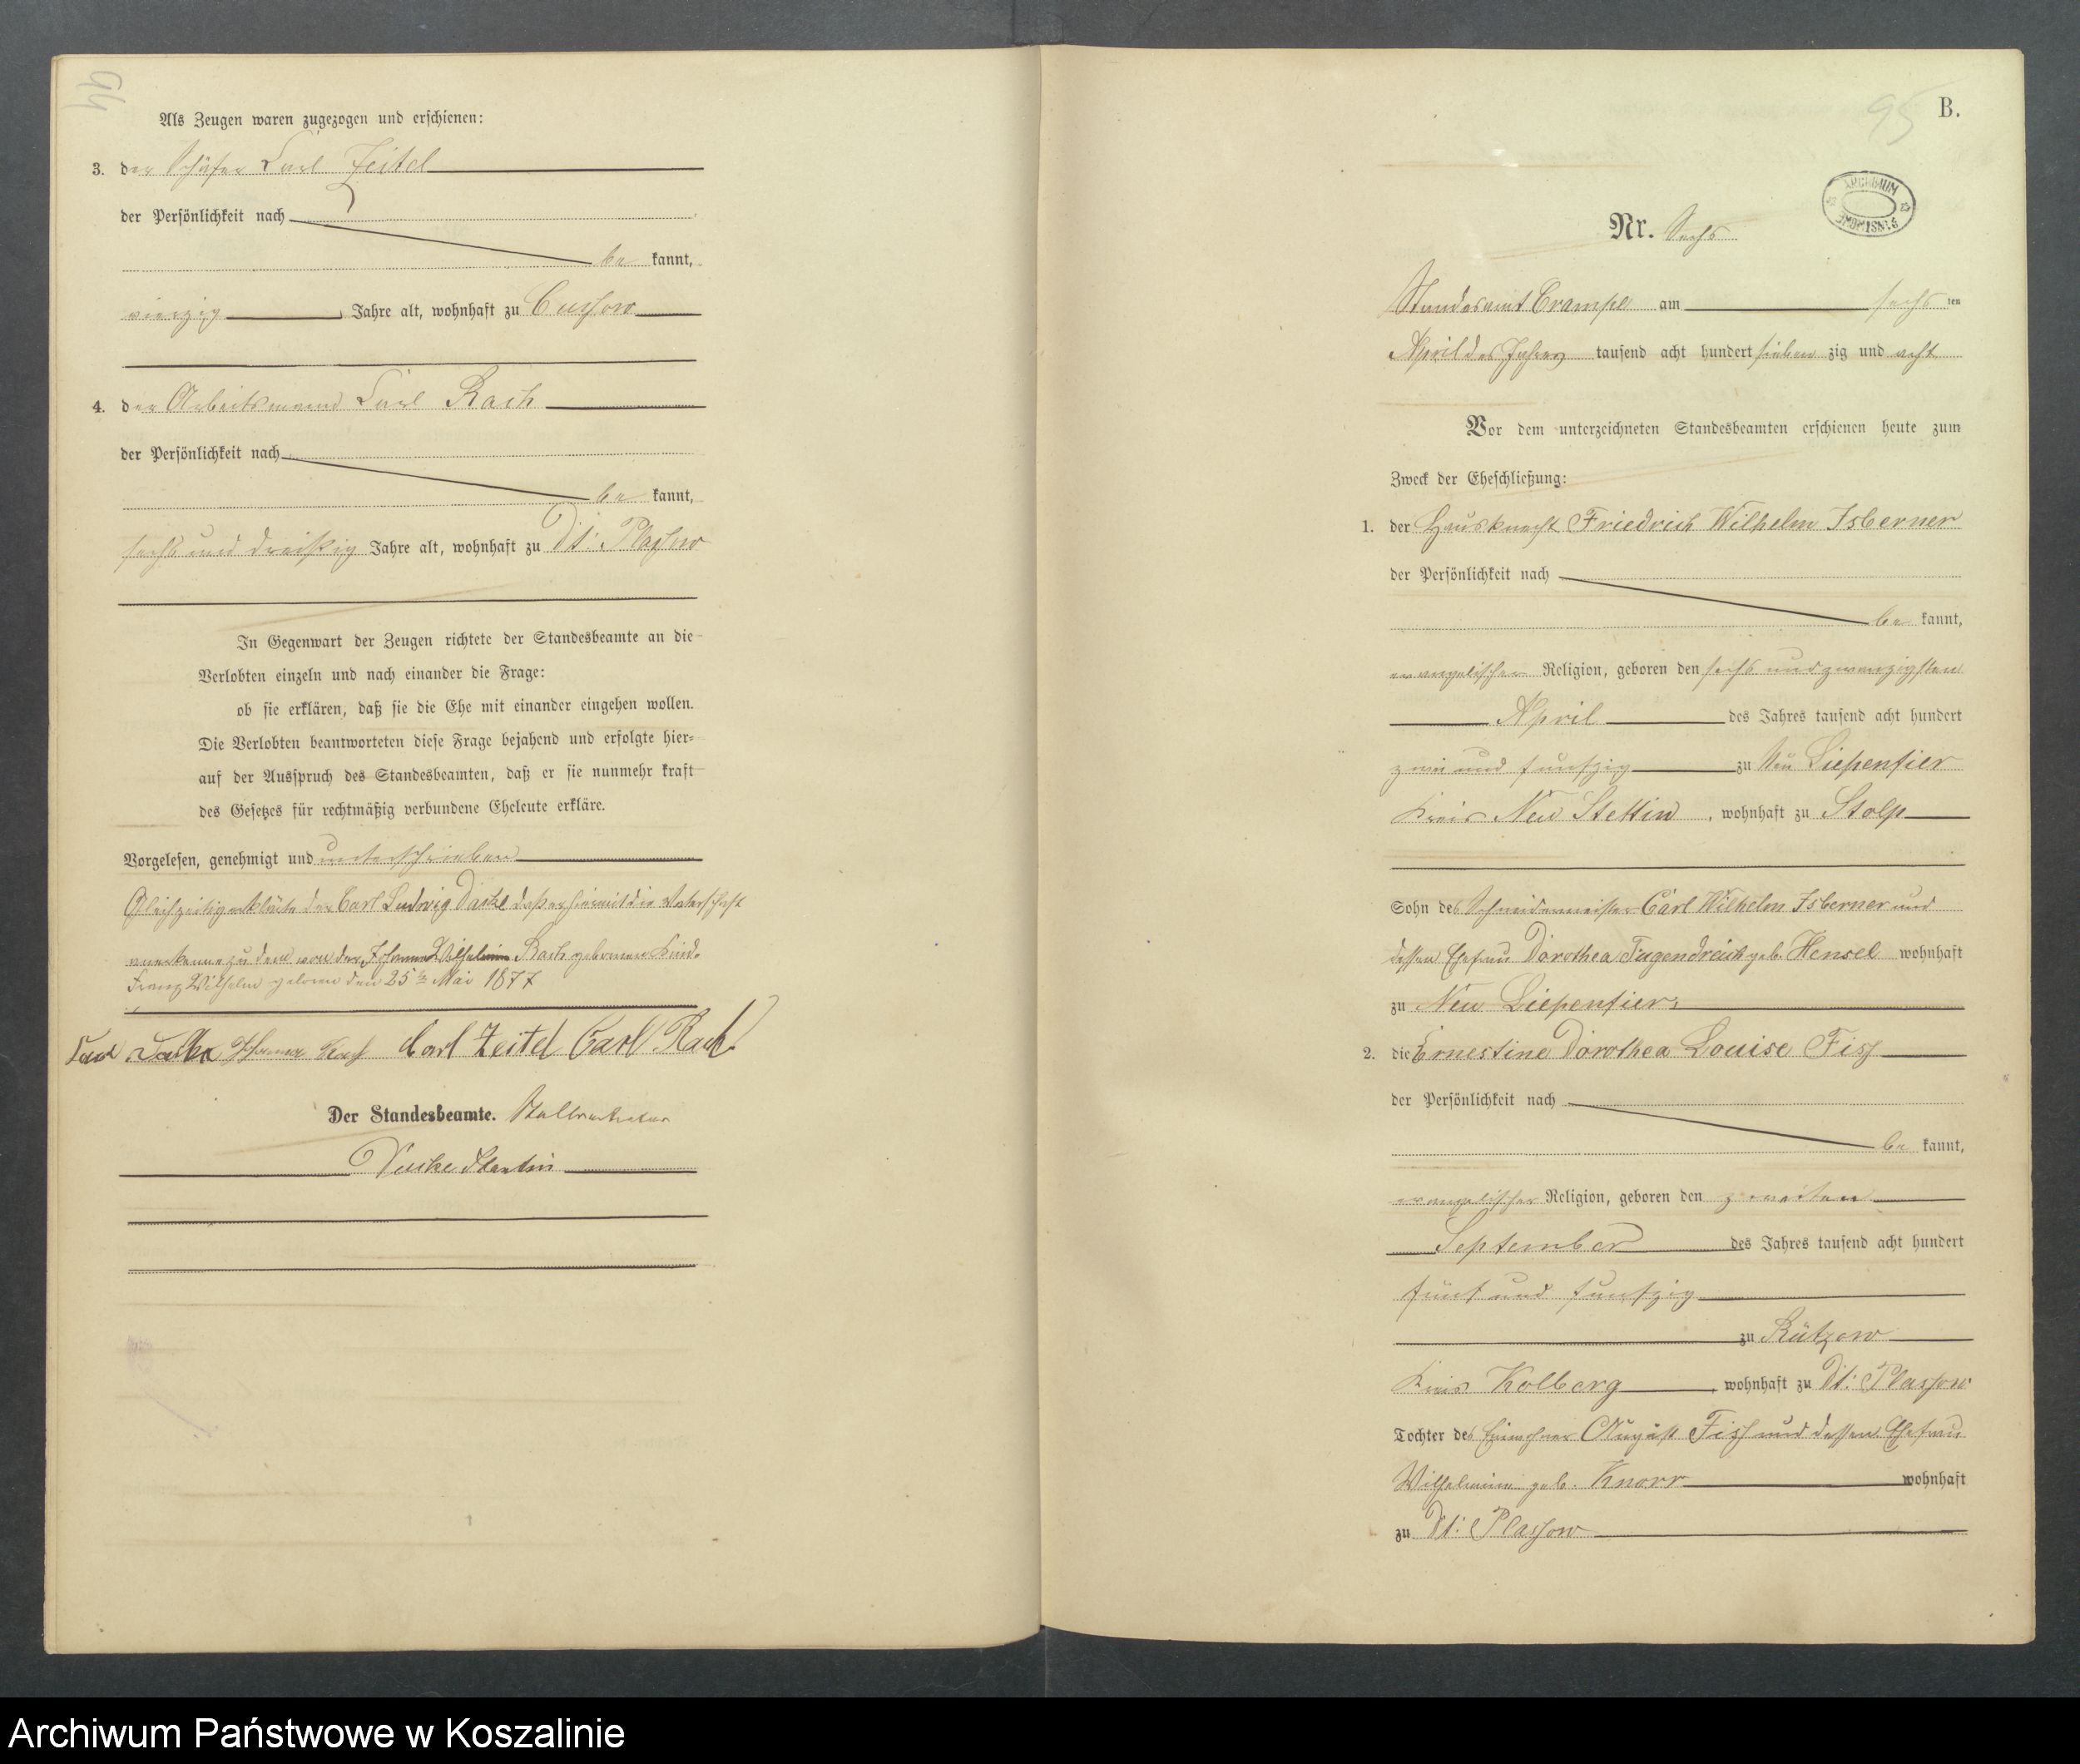 94
Als Zeugen waren zugezogen und erschienen:
3. der Schäfer Carl Zeitel
der Persönlichkeit nach
be kannt,
vierzig Jahre alt, wohnhaft zu Cussow
4. der Arbeitsmann Carl Rach
der Persönlichkeit nach
be kannt,
sechs und dreißig Jahre alt, wohnhaft zu Dt: Plassow
In Gegenwart der Zeugen richtete der Standesbeamte an die
Verlobten einzeln und nach einander die Frage:
ob sie erklären, daß sie die Ehe mit einander eingehen wollen.
Die Verlobten beantworteten diese Frage bejahend und erfolgte hier-
auf der Ausspruch des Standesbeamten, daß er sie nunmehr kraft
des Gesetzes für rechtmäßig verbundene Eheleute erkläre.
Vorgelesen, genehmigt und unterschrieben
Gleichzeitig erklärte der Carl Ludwig daß er hiermit die Vaterschaft
anerkenne zu dem von der Wilhelmine Rach geborenen Kinde
Franz Wilhelm geboren den 25ten Mai 1877
Carl Zeitel Carl Rach
Der Standesbeamte.
95
B.
ARCHIWUM
Nr. Sechs
Standesamt Crampe am sechs ten
April des Jahres tausend acht hundert sieben zig und acht
Vor dem unterzeichneten Standesbeamten erschienen heute zum
Zweck der Eheschließung:
1. der Hausknecht Friedrich Wilhelm Isberner
der Persönlichkeit nach
be kannt,
evangelischer Religion, geboren den sechs und zwanzigsten
April des Jahres tausend acht hundert
zwei und funfzig zu Neu Liepenfier
Kreis Neu Stettin, wohnhaft zu Stolp
Sohn des Schneidermeister Carl Wilhelm Isberner und
dessen Ehefrau Dorothea Tugendreich geb. Hensel wohnhaft
zu Neu Liepenfier;
2. die Ernestine Dorothea Louise Fisch
der Persönlichkeit nach
be kannt,
evangelischer Religion, geboren den zweiten
September des Jahres tausend acht hundert
fünf und funfzig
zu Rützow
Kreis Kolberg, wohnhaft zu Dt: Plassow
Tochter des Einwohner August Fisch und dessen Ehefrau
Wilhelmine geb. Knorr wohnhaft
zu Dt: Plassow
Archiwum Państwowe w Koszalinie